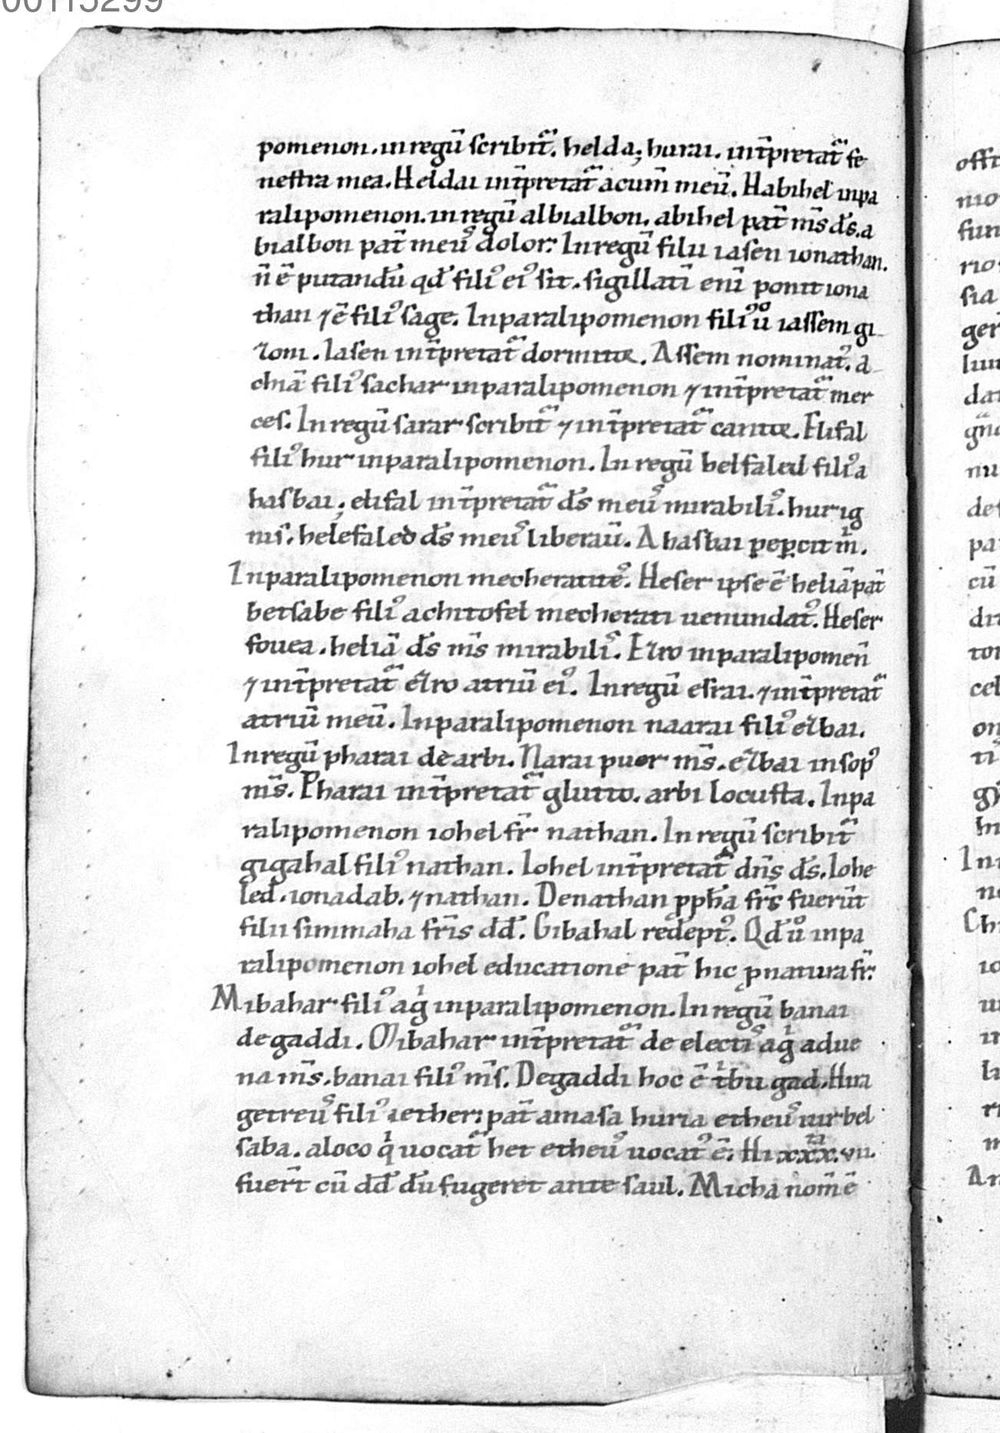 00115299
pomenon. in regū scribit̄. helda; hurai. int̄pretat̄ fe
nestra mea. Heldai int̄pretat̄ acum̄ meū. Habihel inpa
ralipomenon. in regū albialbon. abihel pat̄ m̄s d̄s. a
bialbon pat̄ meuˀ dolor. In regū filii iasen ionathan.
n̄ ē putandū qd̄ filiˀ eiˀ sit. sigillatī enī ponit iona
than ⁊ ē filiˀ sage. Inparalipomenon filiˀ ū iassem gi
zoni. Iasen int̄pretat̄ dormitix. Assem nominatˀ. a
chiā filiˀ sachar inparalipomenon ⁊ int̄pretat̄ mer
ces. In regū sarar scribit̄ ⁊ int̄pretat̄ Elifal
filiˀ hur inparalipomenon. In regū belfaled filiˀ a
hasbai; elifal int̄pretat̄ d̄s meuˀ mirabiliˀ. hur ig
nis. helefaled d̄s meuˀ liberau̅. A hasbai pepercit m̄.
Inparalipomenon mecheratiteˀ. Hefer ipse ē heliā pat̄
betsabe filiˀ achitofel mecherati uenundatˀ. Hefer
fouea. heliā d̄s m̄s mirabiliˀ. Ezro inparalipomen̄
⁊ int̄pretat̄ ezro atriū eiˀ. In regū esrai. ⁊ int̄pretat̄
atriū meū. Inparalipomenon naarai filiˀ ezbai.
In regū pharai de arbi. Narai puer m̄s. ezbai insop̄
m̄s. Pharai int̄pretat̄ glutto. arbi locusta. Inpa
ralipomenon iohel fr̄ nathan. In regū scribit̄
gigahal filiˀ nathan. Iohel int̄pretat̄ dn̄s d̄s. Iohe
led. ionadab. ⁊ nathan. De nathan ppha fr̄s fuer̄t
filii simmaha fr̄is dd̄. Gibahal redeptˀ. Qd̄ ū inpa
ralipomenon iohel educatione pat̄ hic p natura fr̄.
Mibahar filiˀ ag̍ inparalipomenon. In regū banai
de gaddi. Mibahar int̄pretat̄ de electiˀ ag̍ adue
na m̄s. banai filiˀ m̄s. De gaddi hoc ē tbu gad. Hira
getreuˀ filiˀ iether; pat̄ amasa huria etheuˀ uir bel
saba. a loco q̍ uocat̄ het etheuˀ uocatˀ ē. Hi xxxᵗᵃ. vii.
fuer̄t cū dd̄ dū fugeret ante saul. Micha nom̄ ē